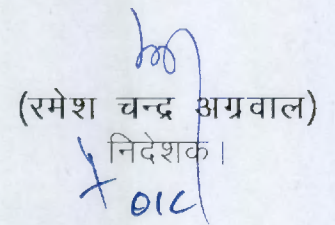 (रमेश चन्द्र अग्रवाल)
निदेशक।
OIC